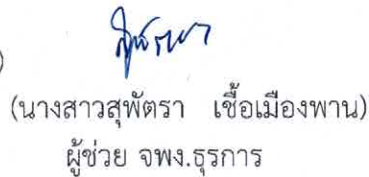 )
(นางสาวสุพัตรา เชื้อเมืองพาน)
ผู้ช่วย จพง.ธุรการ